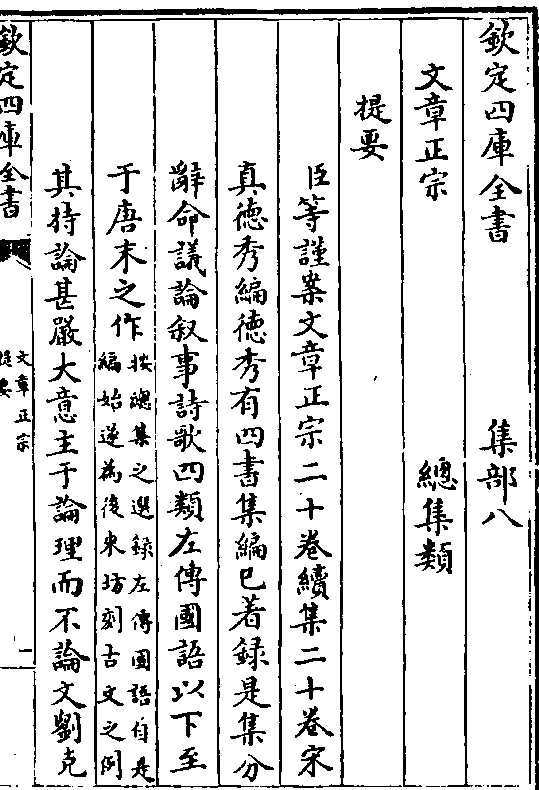 欽定四庫全書　集部八
文章正宗　總集類
提要
臣等謹案文章正宗二十卷續集二十卷宋
真德秀編德秀有四書集編已著録是集分
辭命議論叙事詩歌四類左傳國語以下至
于唐末之作按總集之選録左傳國語自是
編始遂為後來坊刻古文之例
其持論甚嚴大意主于論理而不論文劉克
欽定四庫全書
文章正宗
提要
一